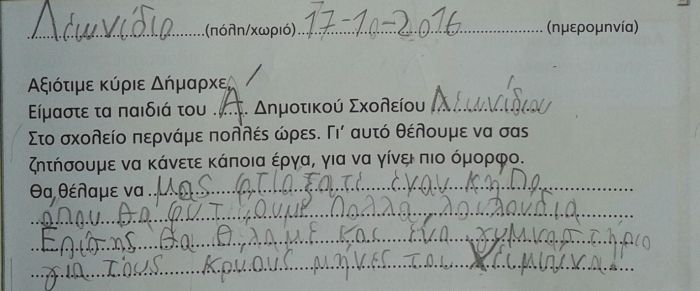 Λεωνίδιο (πόλη/χωριό) 17-10-2016 (ημερομηνία)
Αξιότιμε κύριε Δήμαρχε,
Είμαστε τα παιδιά του Α΄ Δημοτικού Σχολείου Λεωνιδίου
Στο σχολείο περνάμε πολλές ώρες. Γι' αυτό θέλουμε να σας
ζητήσουμε να κάνετε κάποια έργα, για να γίνει πιο όμορφο.
Θα θέλαμε να μας φτιάξατε έναν κήπο,
όπου θα φυτέψουμε πολλά λουλούδια
Επίσης θα θέλαμε και ένα γυμναστήριο
για τους κρύους μήνες του χειμώνα!